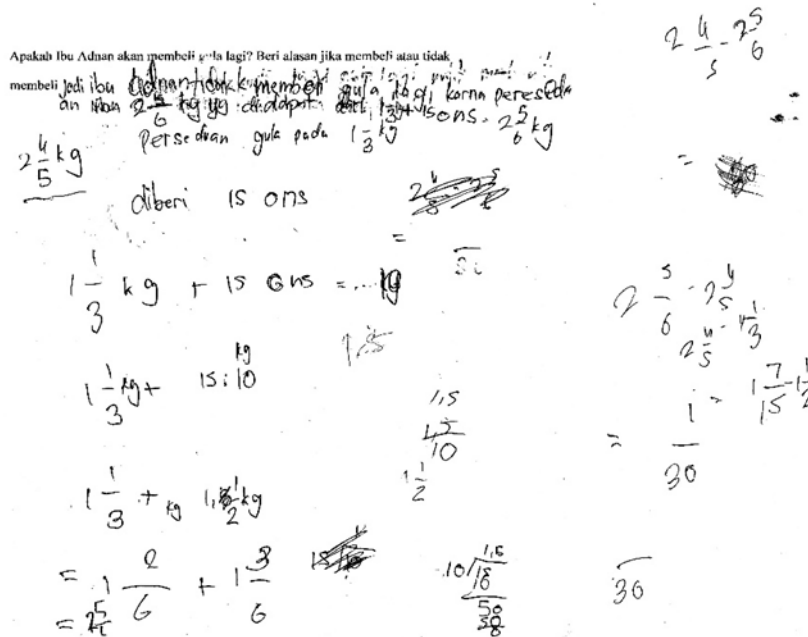 Apakah Ibu Adnan akan membeli gula lagi? Beri alasan jika membeli atau tidak
membeli jadi ibu Adnan tidak membeli gula lagi karna persedia
an 2 5/6 kg yg didapat dari 1 1/3 + 15 ons = 2 5/6 kg
Persedian gula pada 1 1/3 kg
2 4/5 kg
diberi 15 ons
1 1/3 kg + 15 ons = ... kg
1 1/3 kg + 15 : 10 kg
1 1/3 + kg 1 1/2 kg
= 1 2/6 + 1 3/6
= 2 5/6
1,5
15/10
1 1/2
10/15 1,5
50
2 4/5 - 2 5/6
=
2 5/6 - 2 4/5
2 4/5 - 1 1/3
= 1/30 = 1 7/15 - 1 1/2
30